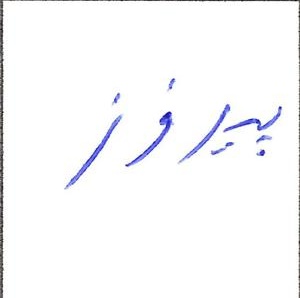 پیروز